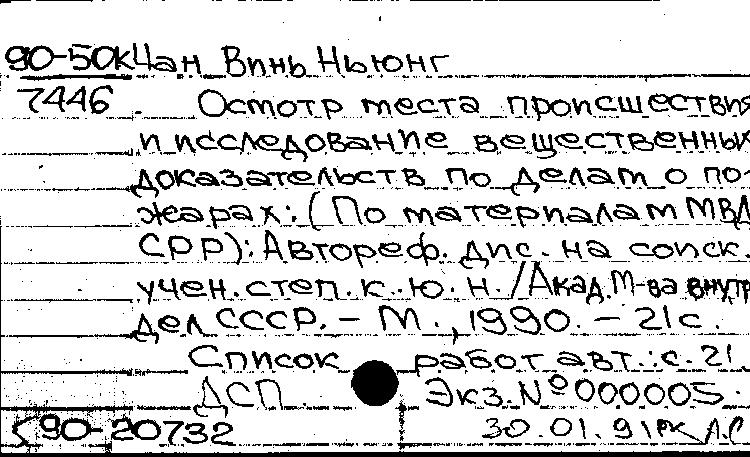 90-50к Чан Винь Ньюнг
7446 Осмотр места происшествия
и исследование вещественных
доказательств по делам о по-
жарах: (По материалам МВД
СРР): Автореф. дис. на соиск.
учен. степ. к. ю. н. / Акад. М-ва внутр.
дел СССР. – М., 1990. – 21 с.
Список работ авт.: с. 21.
ДСП Экз. № 000005.
90-20732 30.01.91